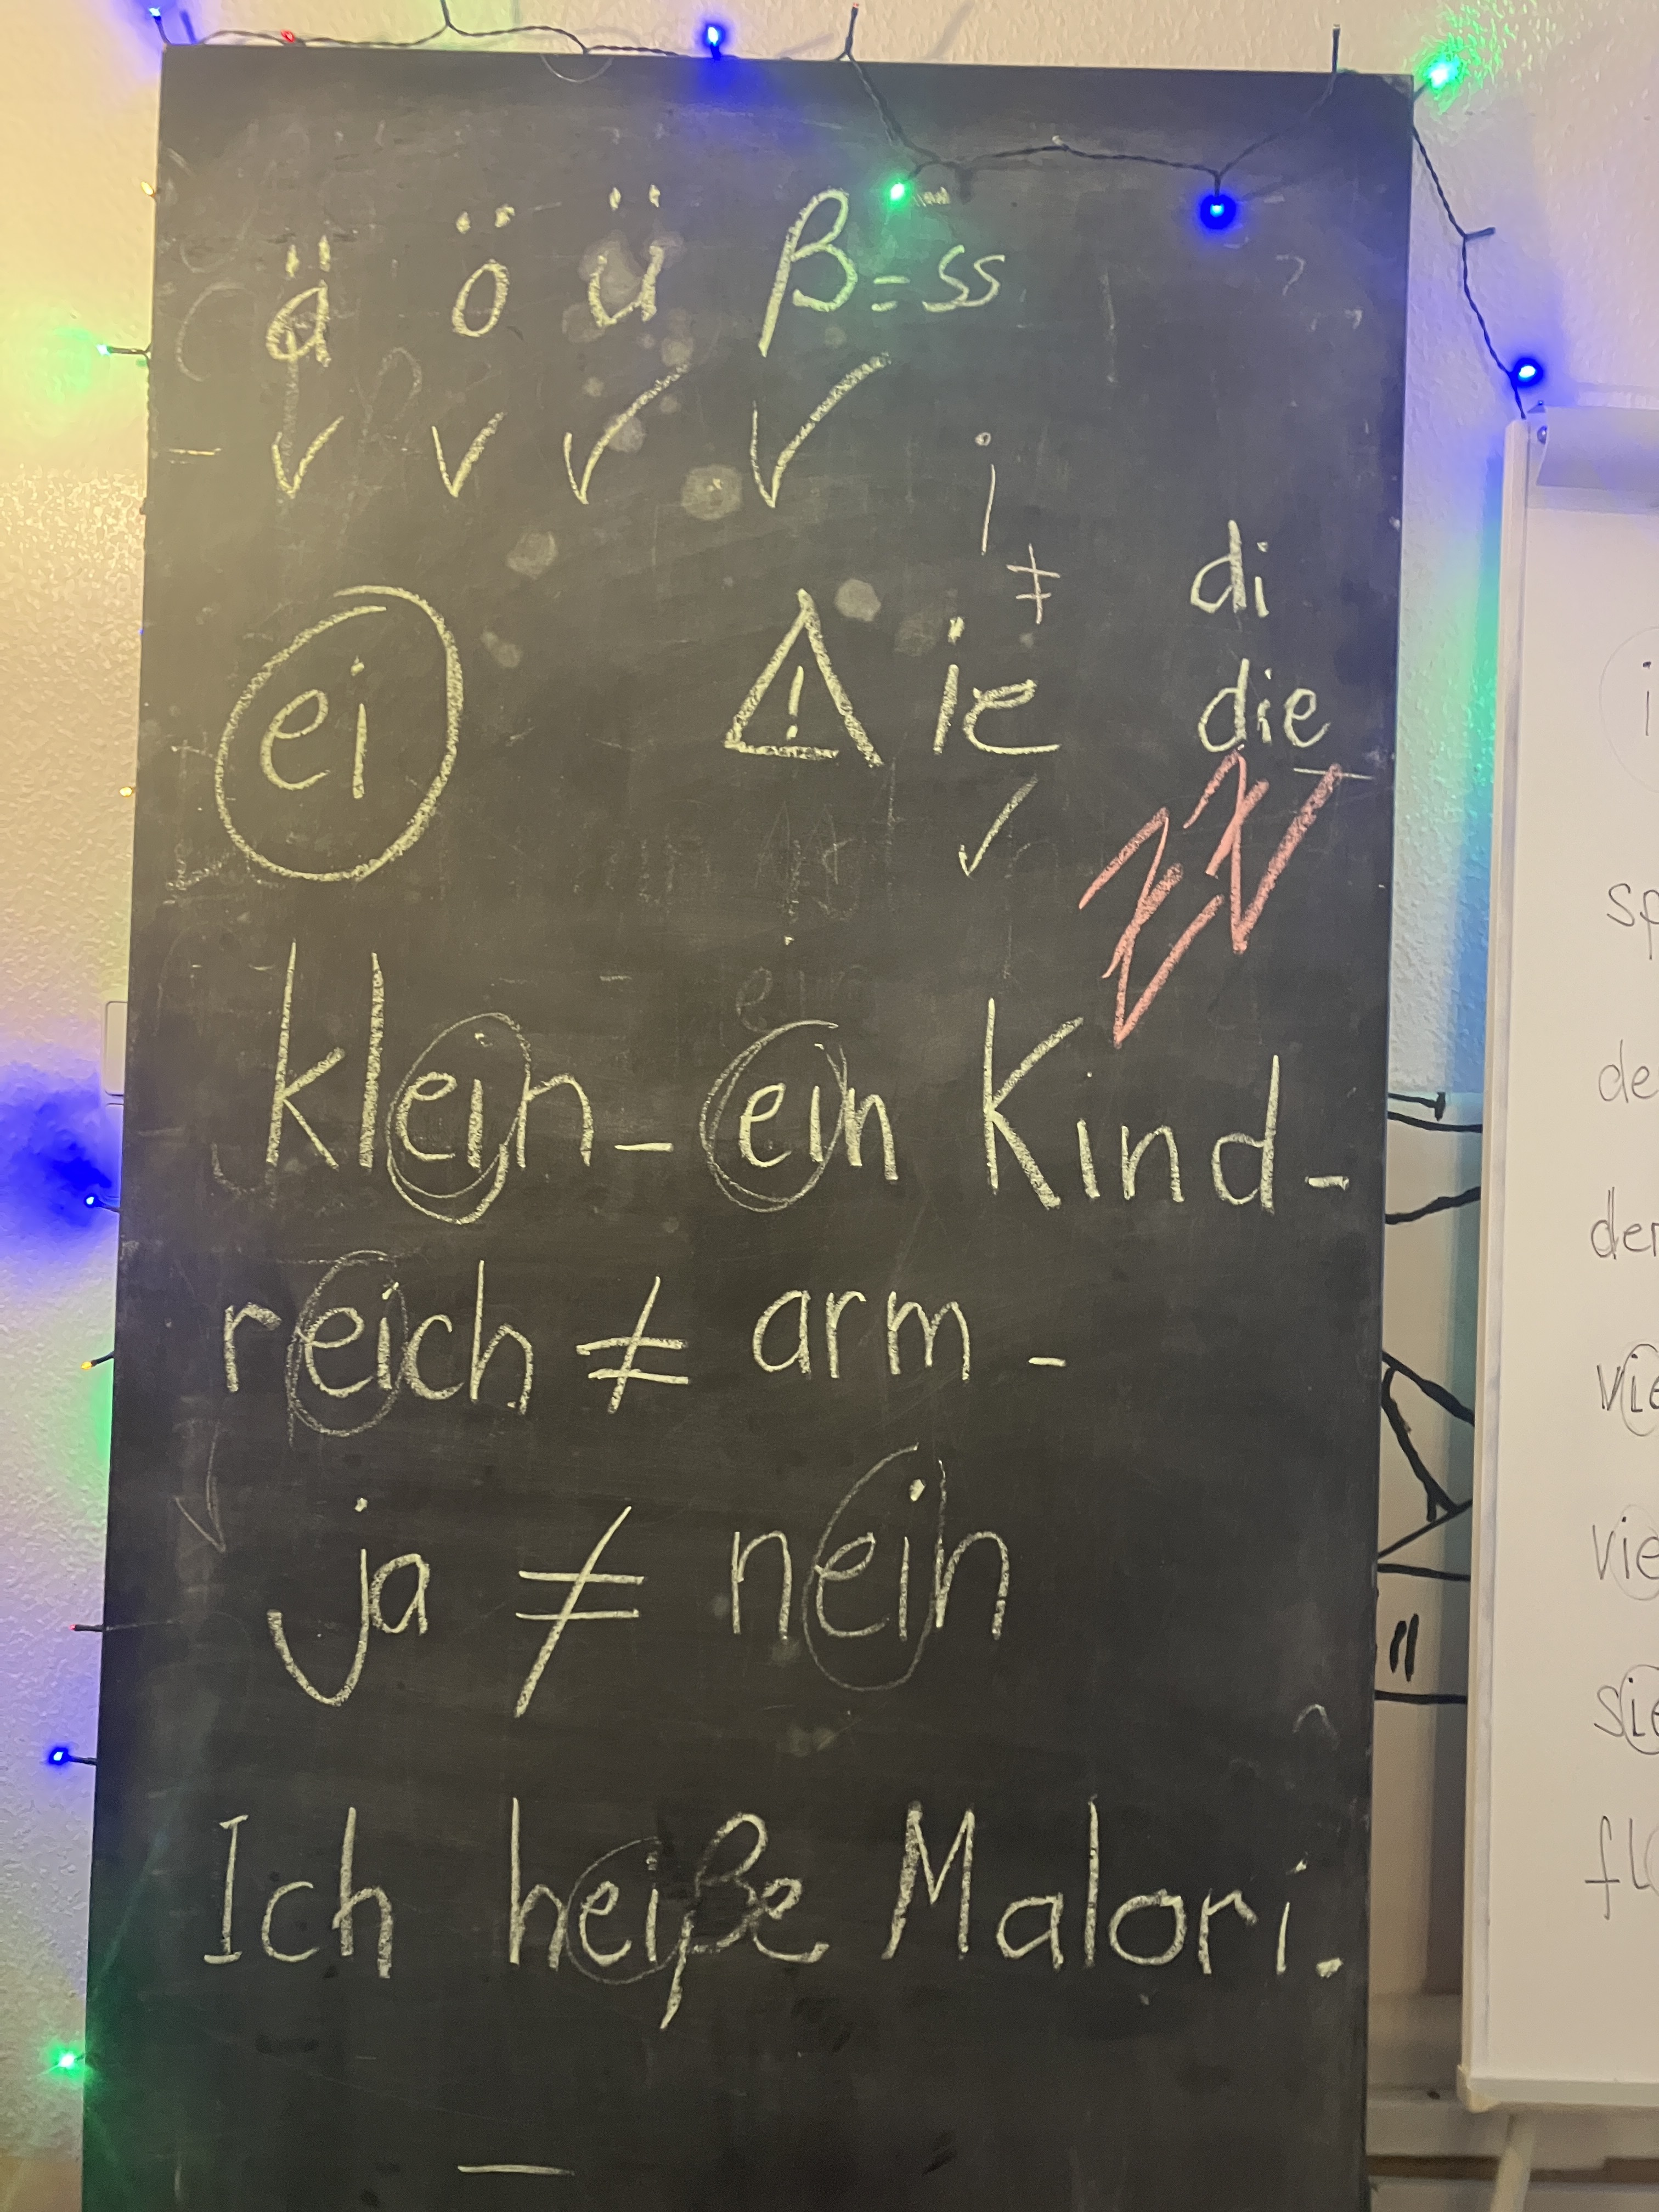 ä ö ü ß = ss
i
≠
di
ei
ie
die
klein - ein Kind -
reich ≠ arm -
ja ≠ nein
Ich heiße Malori.
i
sp
de
der
vie
vie
sie